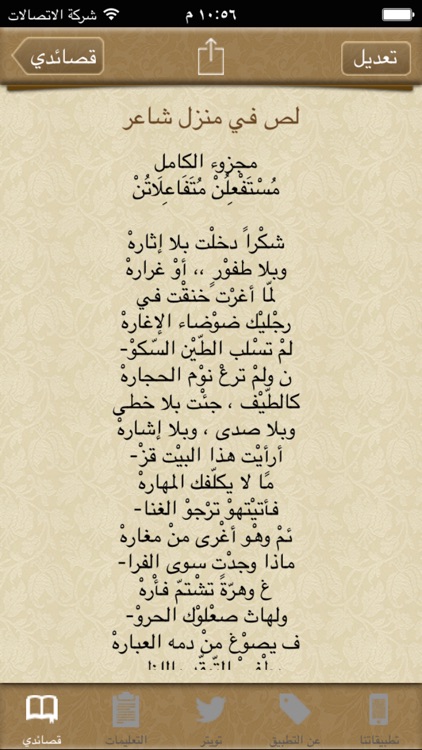 شركة الاتصالات ١٠:٥٦ م
قصائدي تعديل
لص في منزل شاعر
مجزوء الكامل
مُسْتَفْعِلُنْ مُتَفَاعِلَاتُنْ
شكْراً دخلْت بلا إثارهْ
وبلا طفوْرٍ ،، أوْ غرارهْ
لمّا أغرْت خنقْت في
رجْليْك ضوْضاء الإغارهْ
لمْ تسْلب الطّيْن السّكوْ-
ن ولمْ ترعْ نوْم الحجارهْ
كالطّيْف ، جئْت بلا خطى
وبلا صدى ، وبلا إشارهْ
أرأيْت هذا البيْت قزْ-
مًا لا يكلّفك المهارهْ
فأتيْتهوْ ترْجوْ الغنا-
ئمْ وهْو أعْرى منْ مغارهْ
ماذا وجدْت سوى الفرا-
غ وهرّةً تشْتمّ فأْرهْ
ولهاث صعْلوْك الحروْ-
ف يصوْغ منْ دمه العبارهْ
قصائدي التعليمات تويتر عن التطبيق تطبيقاتنا